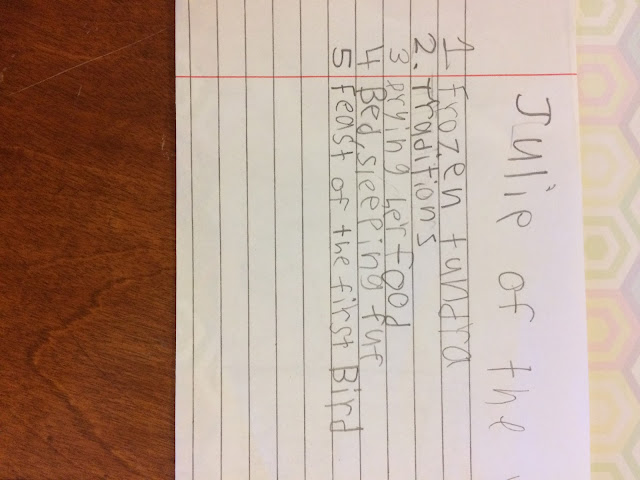 Julie of the
1 Frozen tundra
2. Traditions
3 drying her food
4 Bed, sleeping fur
5 Feast of the first Bird